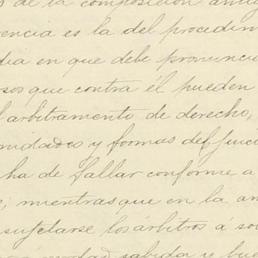 de la composición amig
encia es la del procedim
dia en que debe pronuncia
sos que contra él pueden
arbitramento de derecho,
nidades y formas del juici
ha de fallar conforme a
, mientras que en la am
sujetarse los árbitros á so
verdad sabida y bue